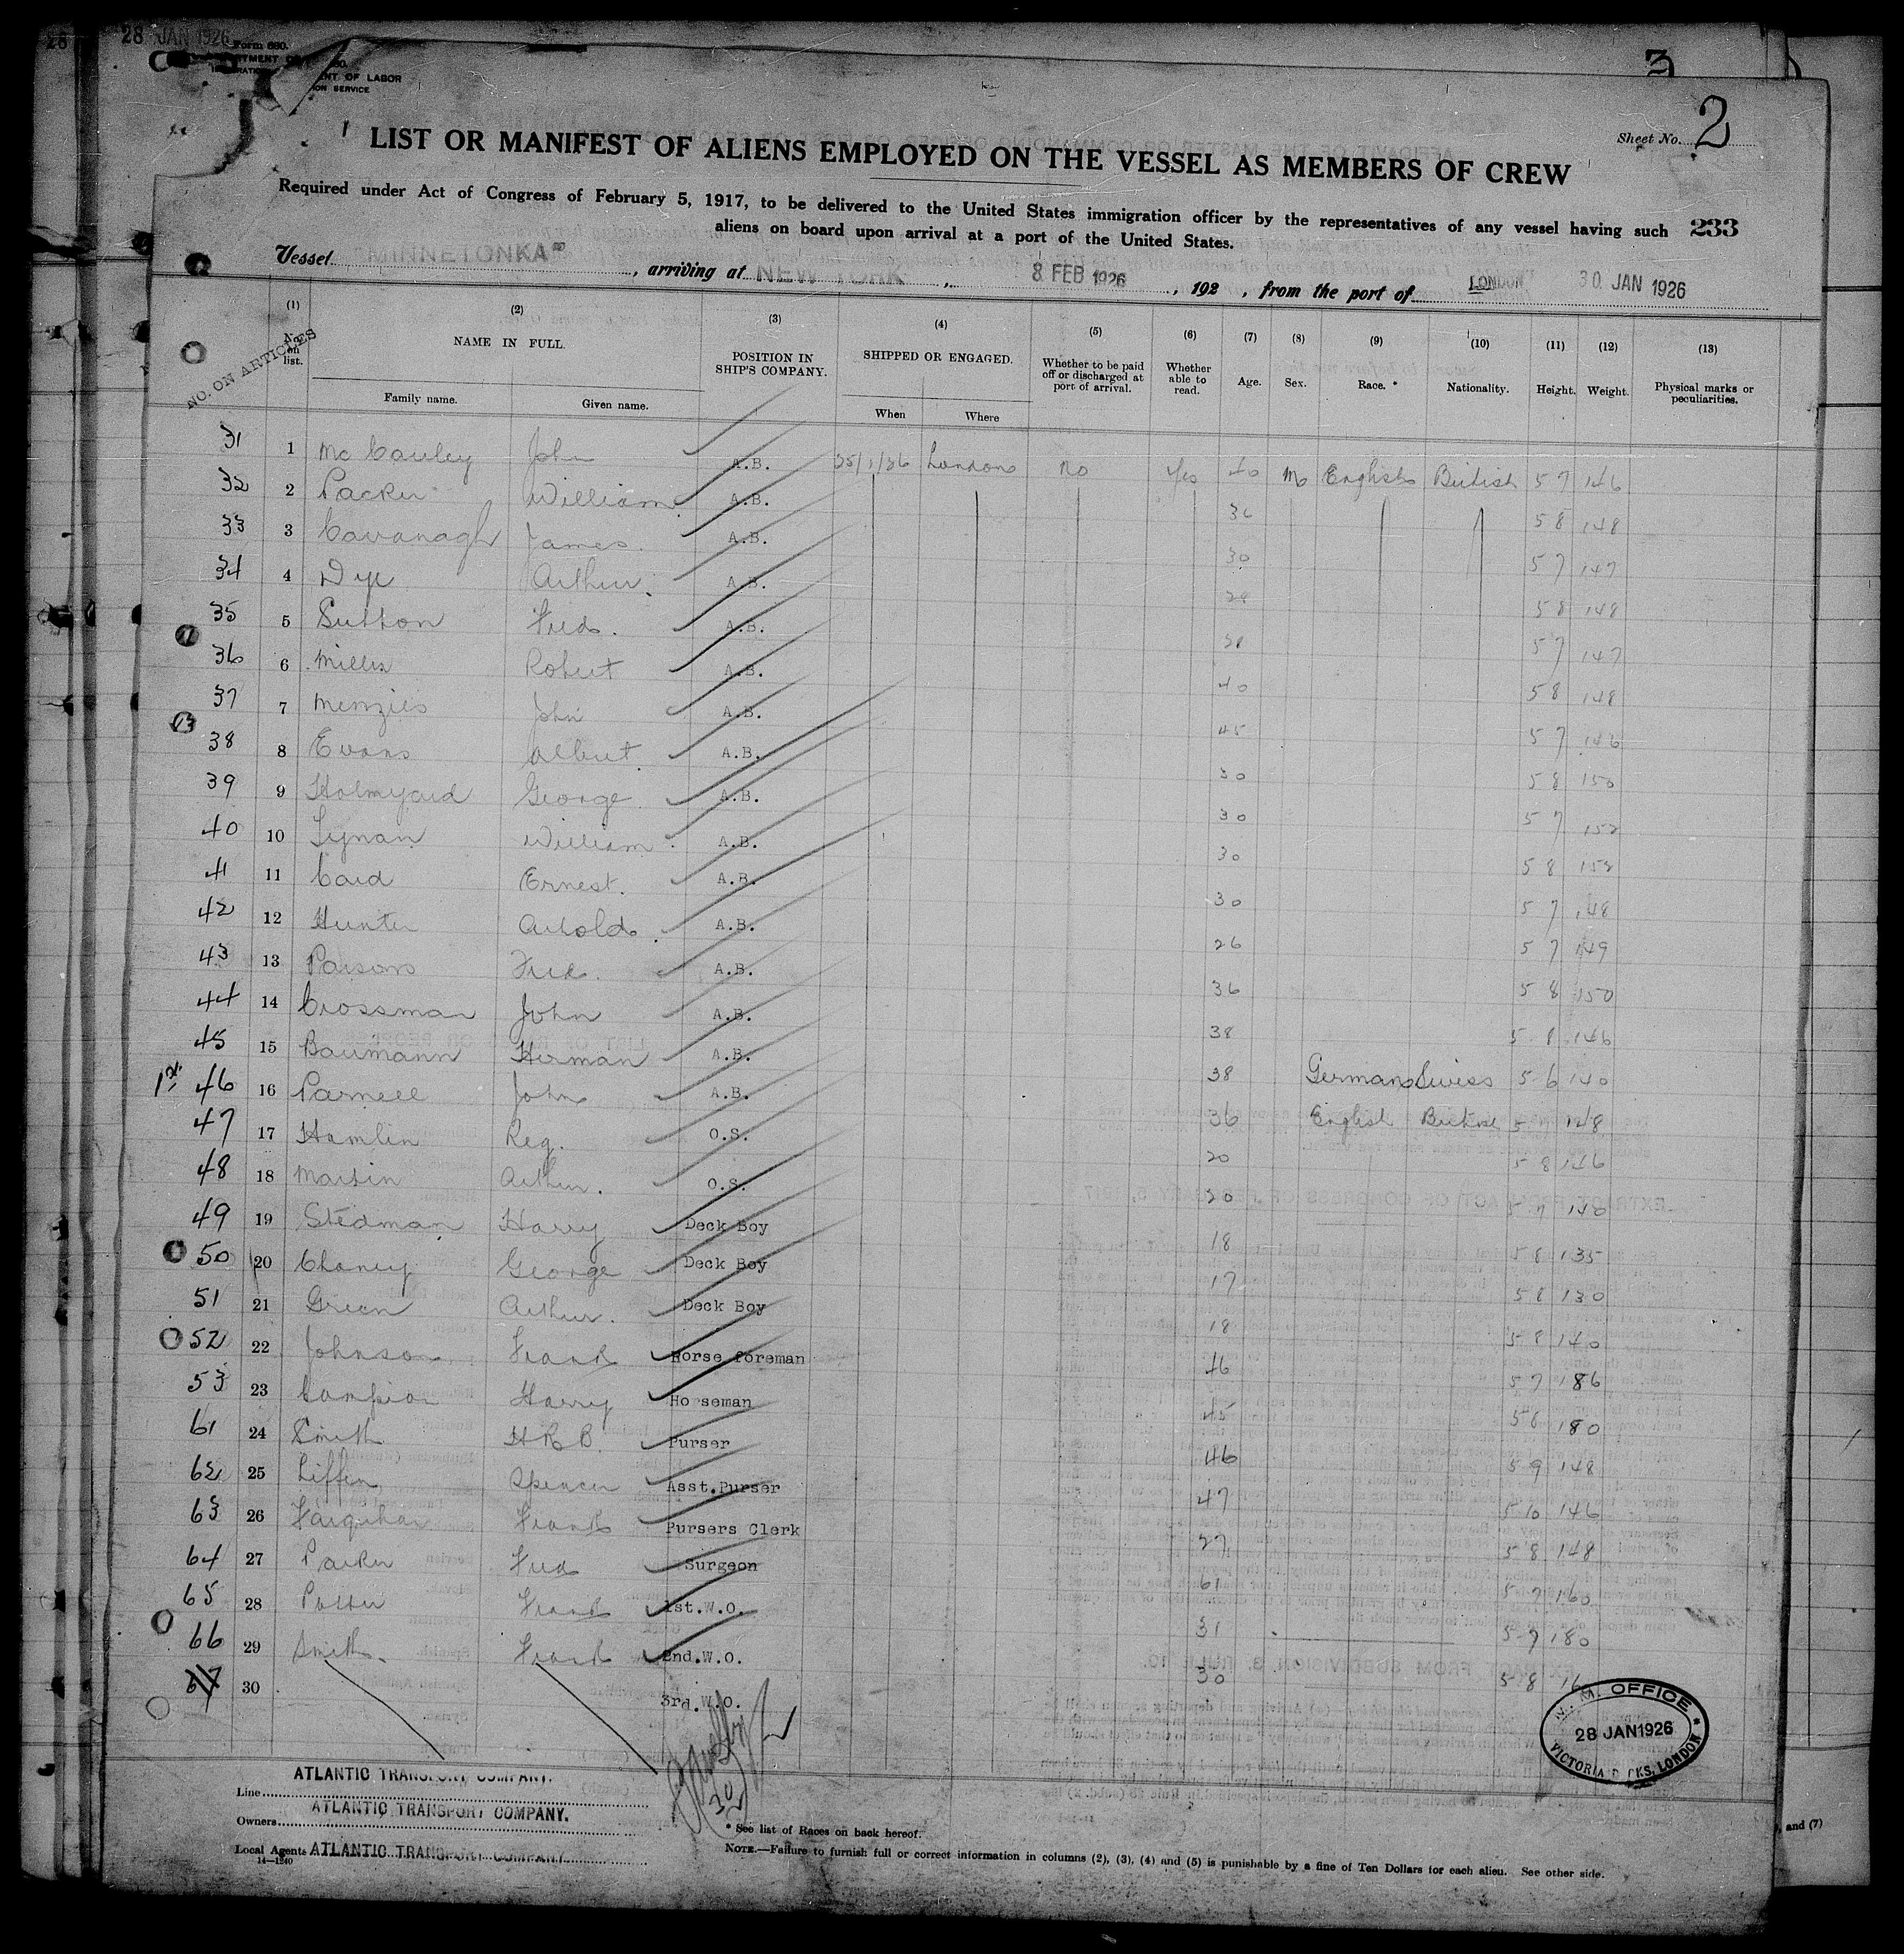 28 JAN 1926
Form 680.
OF LABOR
ION SERVICE
3
Sheet No. 2
LIST OR MANIFEST OF ALIENS EMPLOYED ON THE VESSEL AS MEMBERS OF CREW
Required under Act of Congress of February 5, 1917, to be delivered to the United States immigration officer by the representatives of any vessel having such 233
aliens on board upon arrival at a port of the United States.
Vessel MINNETONKA, arriving at NEW YORK, 8 FEB 1926, 192 , from the port of LONDON 30 JAN 1926
(1) (2) (3) (4) (5) (6) (7) (8) (9) (10) (11) (12) (13)
NO. ON ARTICLES No. on list. NAME IN FULL. POSITION IN SHIP'S COMPANY. SHIPPED OR ENGAGED. Whether to be paid off or discharged at port of arrival. Whether able to read. Age. Sex. Race. * Nationality. Height. Weight. Physical marks or peculiarities.
Family name. Given name. When Where
31 1 McCauley John A.B. 25/1/26 London No Yes 40 M English British 5 7 146
32 2 Packer William A.B. 36 5 8 148
33 3 Cavanagh James A.B. 30 5 7 147
34 4 Dye Arthur A.B. 28 5 8 148
35 5 Sutton Fred. A.B. 5 7 147
36 6 Miller Robert A.B. 40 5 8 148
37 7 Menzies John A.B. 45 5 7 146
38 8 Evans Albert A.B. 30 5 8 150
39 9 Holmyard George A.B. 30 5 7 152
40 10 Lynan William A.B. 30 5 8 152
41 11 Card Ernest. A.B. 30 5 7 148
42 12 Hunter A.B. 26 5 7 149
43 13 Parsons Fred. A.B. 36 5 8 150
44 14 Crossman John A.B. 38 5 8 146
45 15 Baumann Herman A.B. 38 German Swiss 5 6 140
46 16 Parnell John A.B. 36 English British 5 7 148
47 17 Hamlin Reg. O.S. 20 5 8 146
48 18 Martin Arthur. O.S. 20 5 7 140
49 19 Stedman Harry Deck Boy 18 5 8 135
50 20 Chaney George Deck Boy 17 5 8 130
51 21 Green Arthur. Deck Boy 18 5 8 140
52 22 Johnson Frank Horse foreman 46 5 7 186
53 23 Campion Harry Horseman 45 5 8 180
61 24 Smith H R B. Purser 46 5 9 148
62 25 Spencer Asst.Purser 47 5 10 146
63 26 Farquhar Frank Pursers Clerk 27 5 8 148
64 27 Parker Fred Surgeon 61 5 7 160
65 28 Potter Frank 1st.W.O. 31 5 7 180
66 29 Smith Frank 2nd.W.O. 30 5 8
67 30 3rd.W.O.
I. M. OFFICE
28 JAN 1926
VICTORIA DOCKS, LONDON
Line ATLANTIC TRANSPORT COMPANY.
Owners ATLANTIC TRANSPORT COMPANY.
Local Agents ATLANTIC TRANSPORT COMPANY
14—1240
* See list of Races on back hereof.
NOTE.—Failure to furnish full or correct information in columns (2), (3), (4) and (5) is punishable by a fine of Ten Dollars for each alien. See other side.
, and (7)